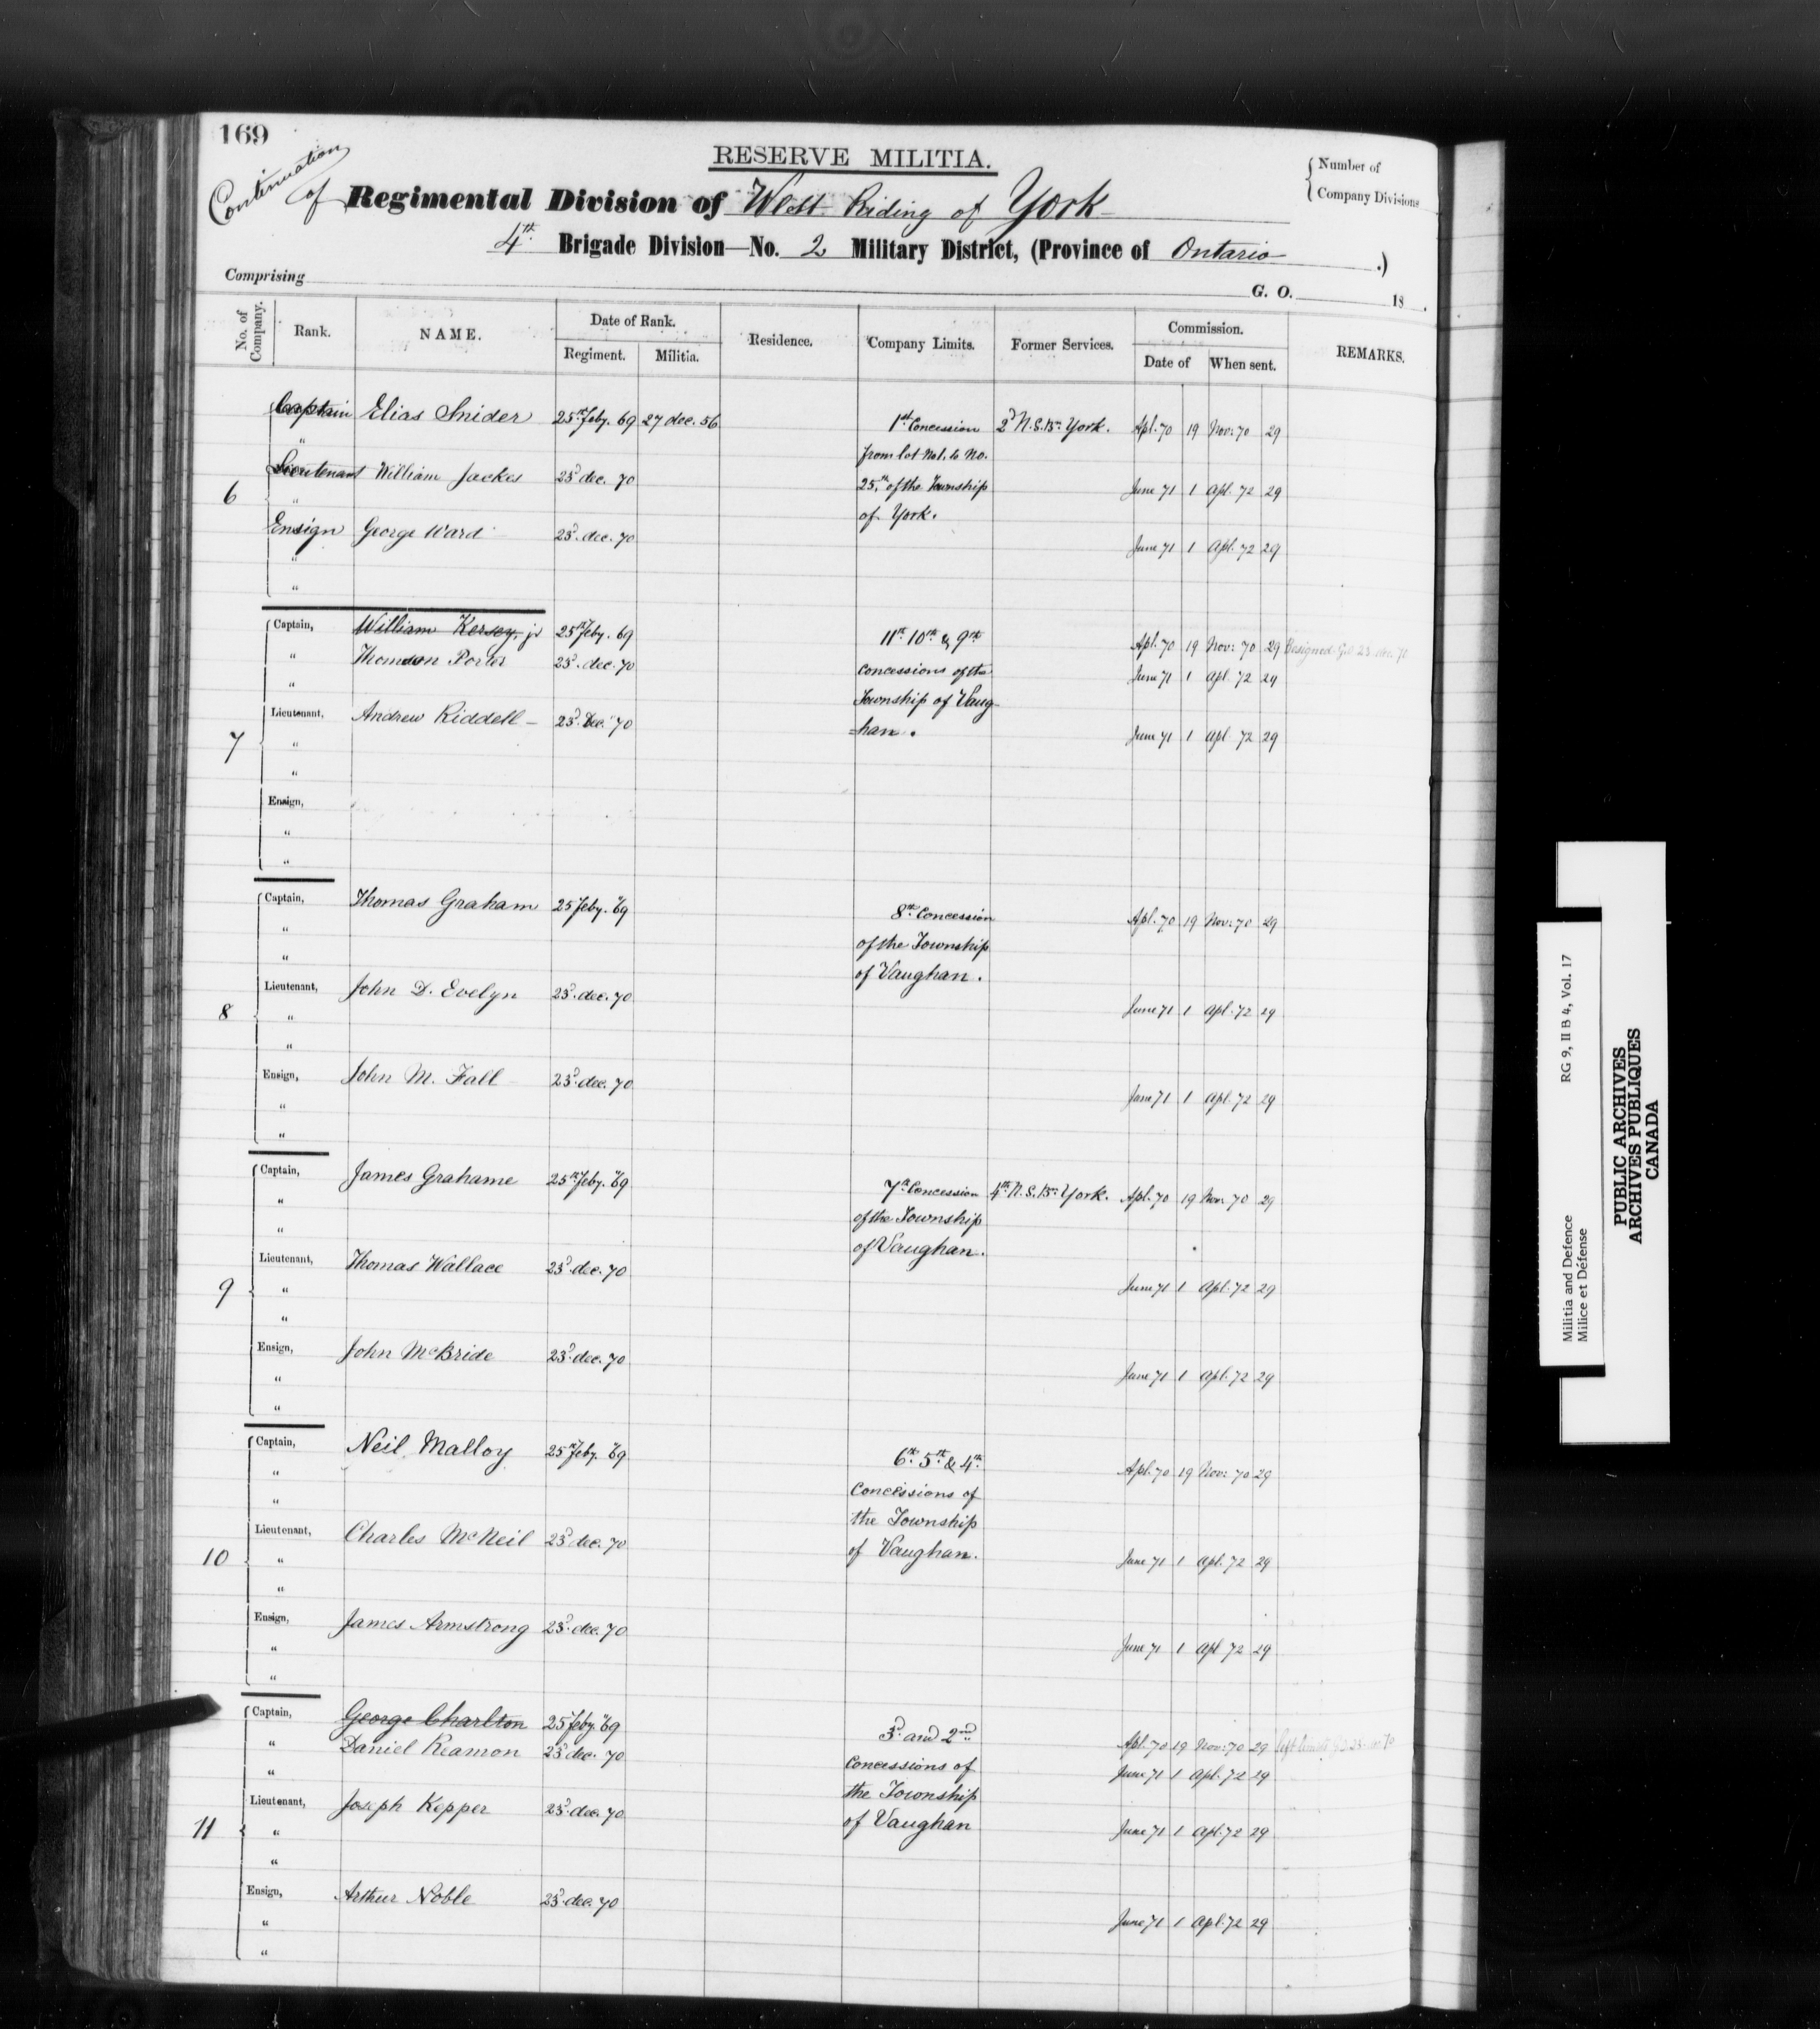 169
RESERVE MILITIA.
Continuation of Regimental Division of West Riding of York
4th. Brigade Division—No. 2 Military District, (Province of Ontario .)
{ Number of
{ Company Divisions
Comprising G. O. 18 .
No. of Company. Rank. NAME. Date of Rank. Residence. Company Limits. Former Services. Commission. REMARKS.
Regiment. Militia. Date of When sent.
Captain Elias Snider 25th Feby. 69 27 dec. 56 1st Concession 2d N.S. Bn. York. Apl. 70 19 Nov: 70 29
" from lot No 1. to No.
6 Lieutenant William Jackes 23d dec. 70 25.th of the Township June 71 1 Apl. 72 29
" of York.
Ensign George Ward 23d. dec. 70 June 71 1 Apl. 72 29
"
"
Captain, William Kersey, jr 25th Feby. 69 11th. 10th. & 9th. Apl. 70 19 Nov: 70 29 Resigned G.O 23 dec. 70
" Thomson Porter 23d. dec. 70 concessions of the June 71 1 Apl. 72 29
" Township of Vaug-
7 Lieutenant, Andrew Riddell – 23d. Dec. 70 =han. June 71 1 Apl. 72 29
"
"
Ensign,
"
"
Captain, Thomas Graham 25 Feby. 69 8th. Concession Apl. 70 19 Nov: 70 29
" of the Township
" of Vaughan.
8 Lieutenant, John D. Evelyn 23d. dec. 70 June 71 1 Apl. 72 29
"
"
Ensign, John M. Fall 23d. dec. 70 June 71 1 Apl. 72 29
"
"
Captain, James Grahame 25th Feby. 69 7th Concession 4th N.S. Bn. York. Apl. 70 19 Nov. 70 29
" of the Township
" of Vaughan.
9 Lieutenant, Thomas Wallace 23d. dec. 70 June 71 1 Apl. 72 29
"
"
Ensign, John McBride 23d. dec. 70 June 71 1 Apl. 72 29
"
"
Captain, Neil Malloy 25th Feby. 69 6th. 5th. & 4th. Apl. 70 19 Nov: 70 29
" Concessions of
" the Township
10 Lieutenant, Charles McNeil 23d dec. 70 of Vaughan. June 71 1 Apl. 72 29
"
"
Ensign, James Armstrong 23d. dec. 70 June 71 1 Apl 72 29
"
"
Captain, George Charlton 25 Feby. 69 3d. and 2nd. Apl. 70 19 Nov: 70 29 Left limits
" Daniel Reamon 23d dec. 70 Concessions of June 71 1 Apl. 72 29
" the Township
11 Lieutenant, Joseph Kepper 23d. dec. 70 of Vaughan June 71 1 Apl. 72 29
"
"
Ensign, Arthur Noble 23d. dec. 70 June 71 1 Apl. 72 29
"
"
Militia and Defence RG 9, II B 4, Vol. 17
Milice et Défense
PUBLIC ARCHIVES
ARCHIVES PUBLIQUES
CANADA